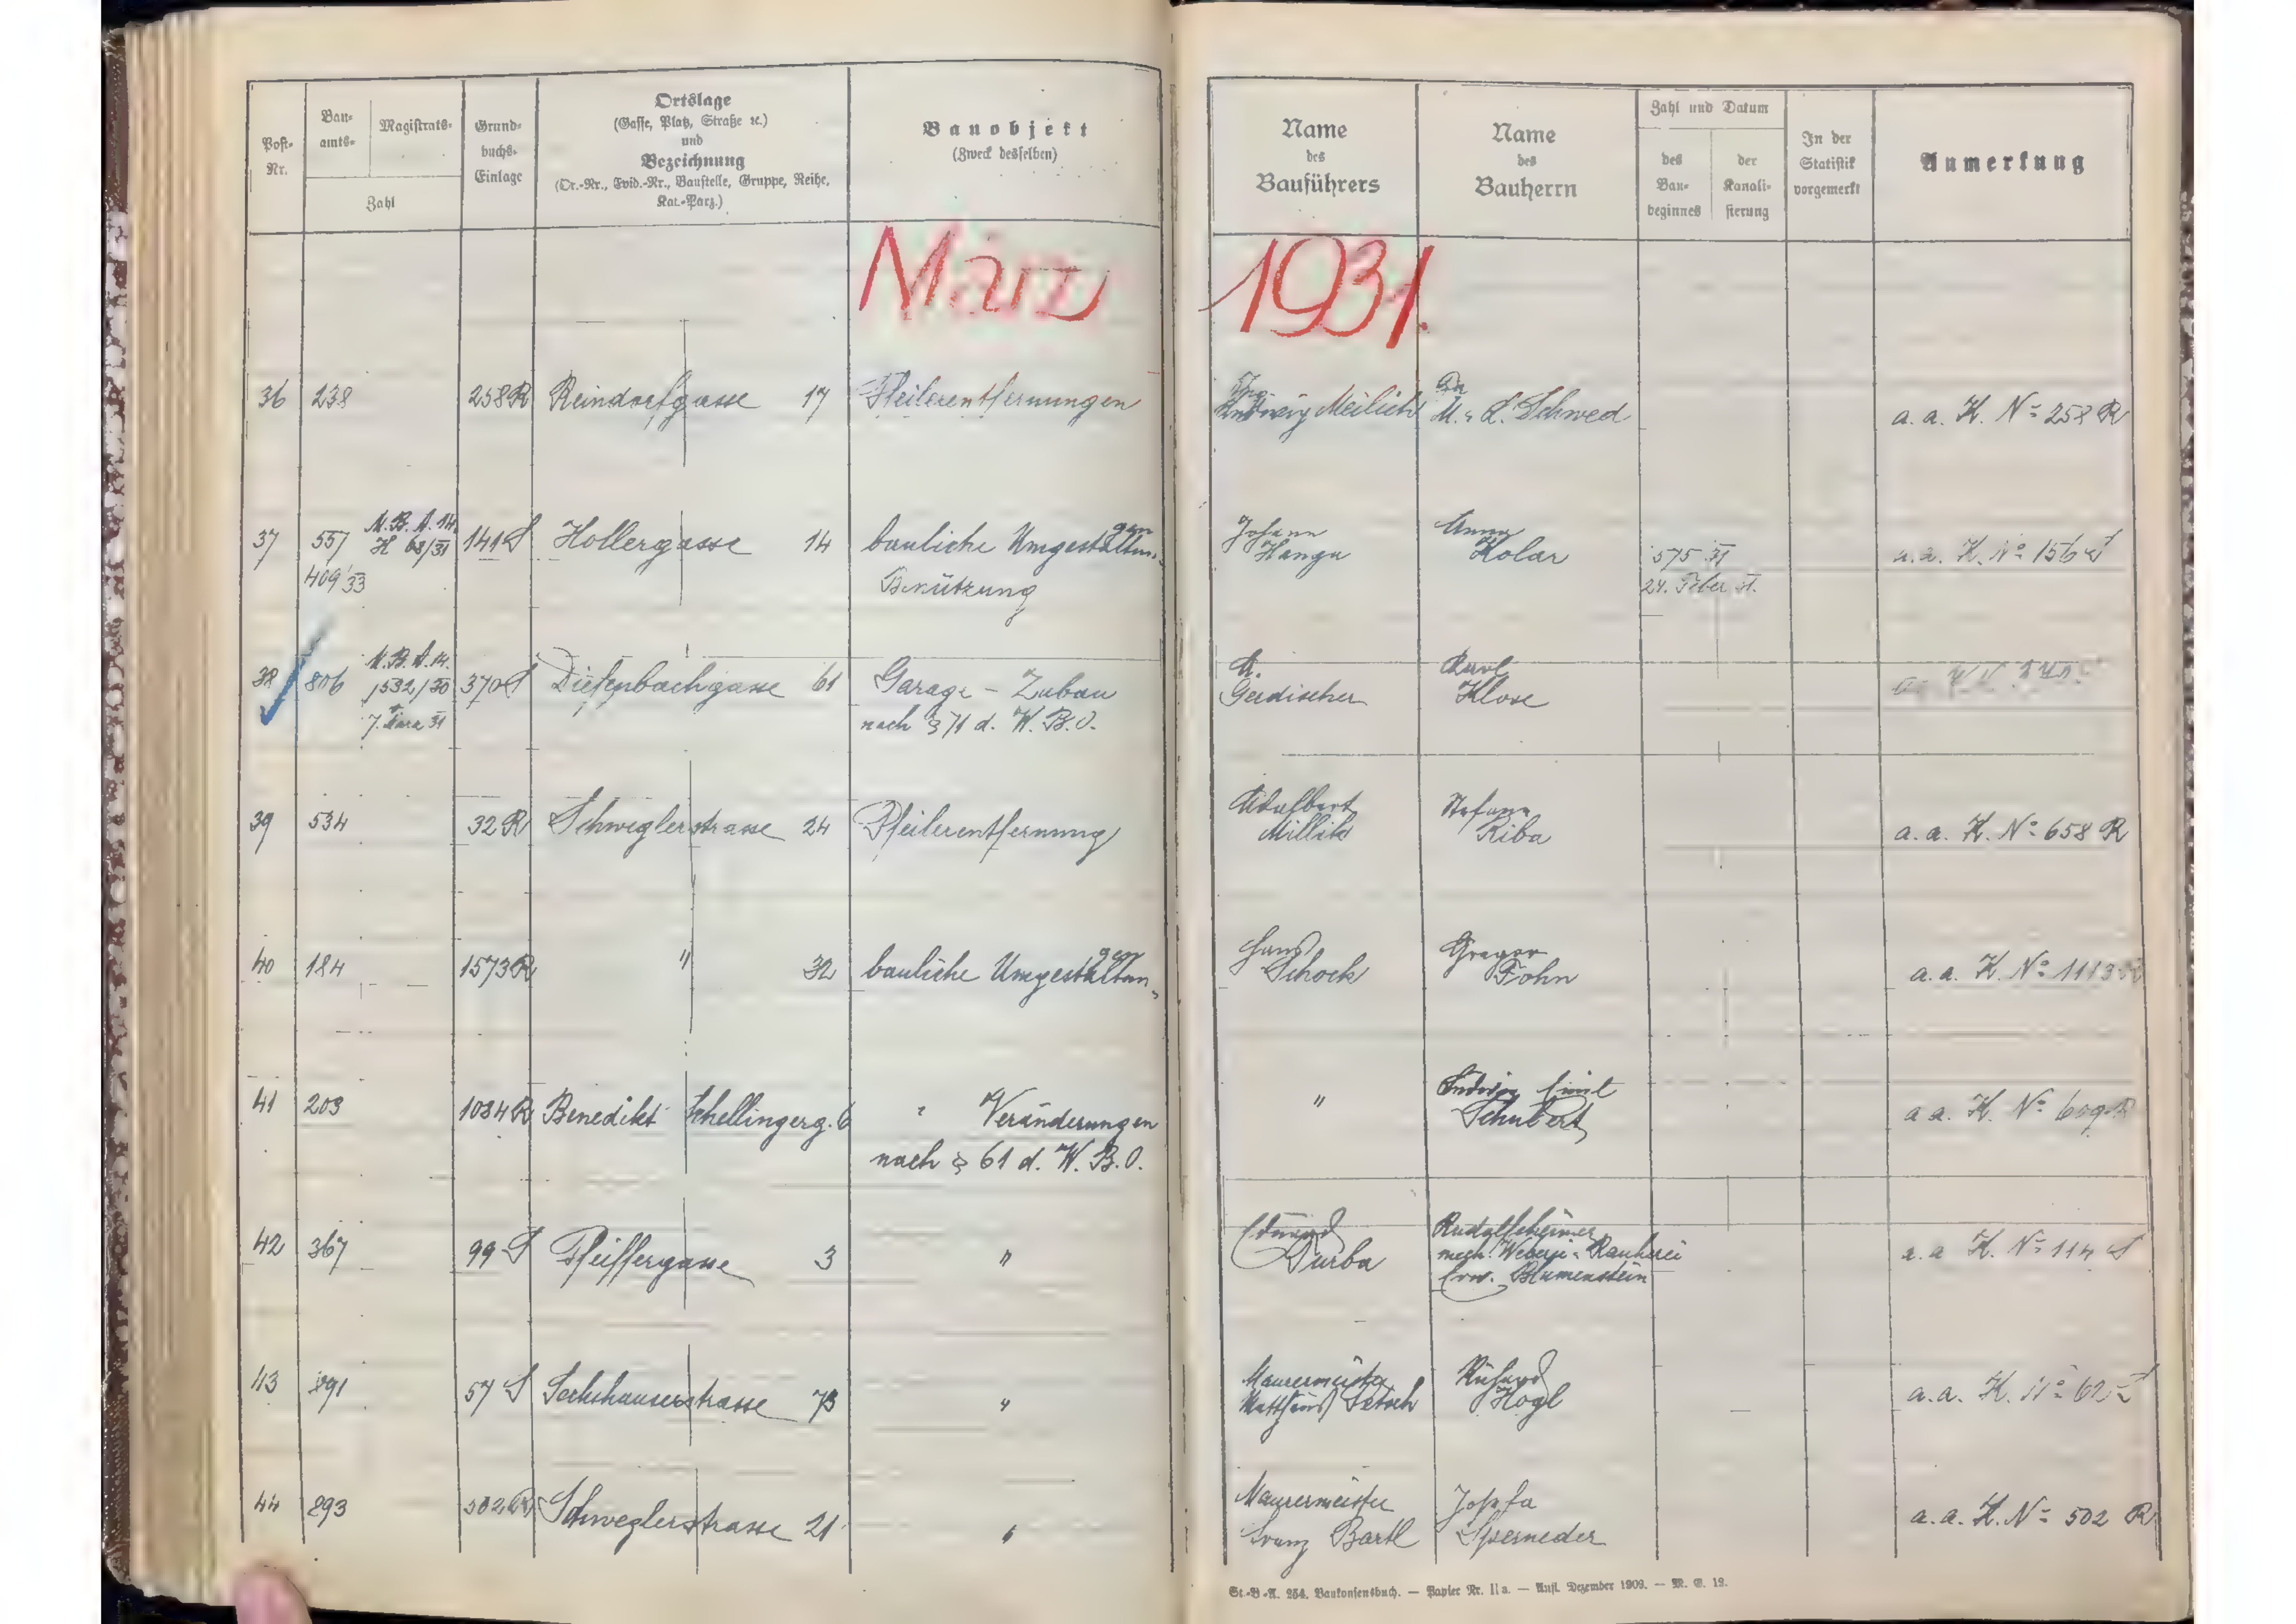 Post-
Nr.
Bau-
amts-
Magistrats-
Zahl
Grund-
buchs-
Einlage
Ortslage
(Gasse, Platz, Straße ꝛc.)
und
Bezeichnung
(Or.-Nr., Evid.-Nr., Baustelle, Gruppe, Reihe,
Kat.-Parz.)
Bauobjekt
(Zweck desselben)
Name
des
Bauführers
Name
des
Bauherrn
Zahl und Datum
des
Bau-
beginnes
der
Kanali-
sierung
In der
Statistik
vorgemerkt
Anmerkung
März 1931.
36 238 258 R Reindorfgasse 17 Pfeilerentfernungen Ing. Meilich M. & L. Schwed a. a. K. No 258 R
37 557 M. B. A. 14. H 68/31 141 S Hollergasse 14 bauliche Umgestaltungen Johann Hanga Anna Kolar 575 31 a. a. K. No 156 S
409 33 Benützung 24. Feber 31.
38 806 M. B. A. 14. 1532/30 370 S Diefenbachgasse 61 Garage - Zubau A. Gerdischer Karl Klose
7. März 31 nach § 71 d. W. B. O.
39 534 32 R Schweglerstrasse 24 Pfeilerentfernung Adalbert Millik Stefanie Riba a. a. K. No 658 R
40 184 1573 R " 32 bauliche Umgestaltungen Hans Schock Gregor Fohn a. a. K. No 1113 R
41 203 1084 R Benedikt Schellingerg. 6 " Veränderungen " Ludwig Emil Schubert a. a. K. No 609 R
nach § 61 d. W. B. O.
42 367 99 S Pfeiffergasse 3 " Eduard Durba Rudolfsheimer
mech. Weberei & Rauherei
Erw. Blumenstein a. a. K. No 114 S
43 891 57 S Sechshauserstrasse 73 " Maurermeister
Matthäus Richard Hogl a. a. K. No 62 S
44 893 502 R Schweglerstrasse 21 " Maurermeister
Franz Bartl Josefa Sperneder a. a. K. No 502 R
St.-B.-A. 254. Baukonsensbuch. — Papier Nr. II a. — Aufl. Dezember 1909. — M. E. 19.